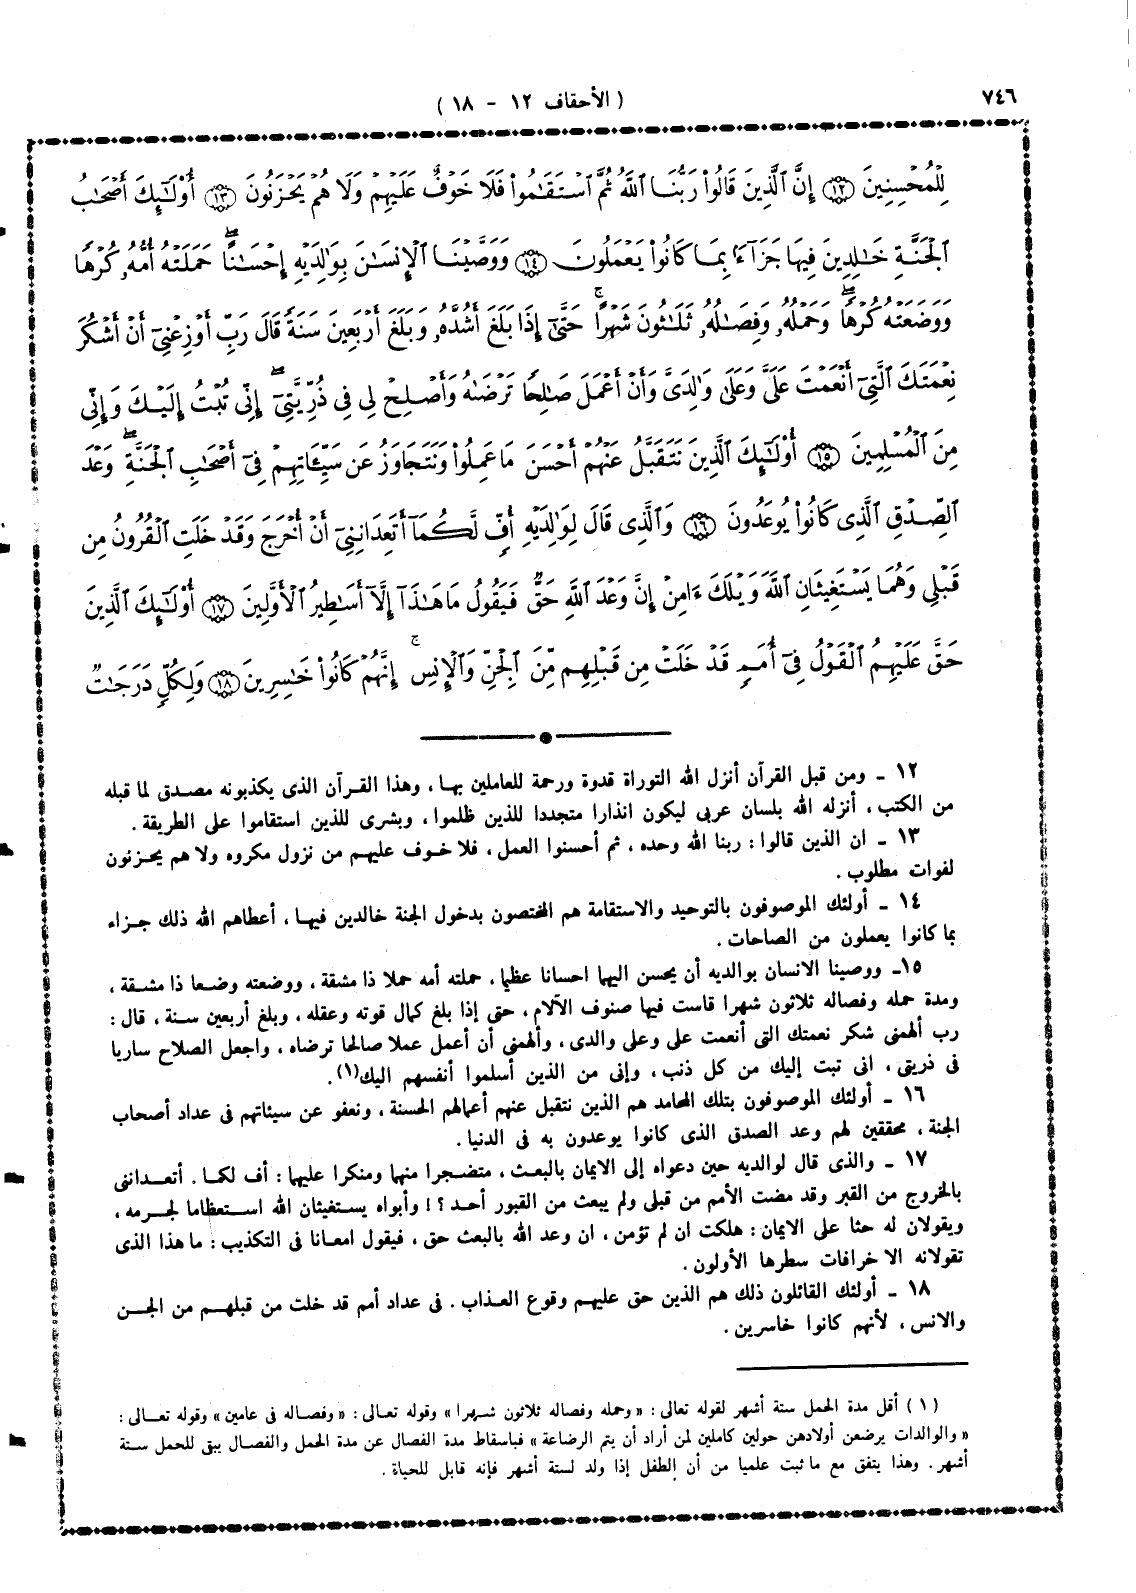 ٧٤٦
( الأحقاف ١٢ – ١٨ )
لِلْمُحْسِنِينَ ١٢ إِنَّ ٱلَّذِينَ قَالُوا۟ رَبُّنَا ٱللَّهُ ثُمَّ ٱسْتَقَـٰمُوا۟ فَلَا خَوْفٌ عَلَيْهِمْ وَلَا هُمْ يَحْزَنُونَ ١٣ أُو۟لَـٰٓئِكَ أَصْحَـٰبُ
ٱلْجَنَّةِ خَـٰلِدِينَ فِيهَا جَزَآءًۢ بِمَا كَانُوا۟ يَعْمَلُونَ ١٤ وَوَصَّيْنَا ٱلْإِنسَـٰنَ بِوَٰلِدَيْهِ إِحْسَـٰنًا ۖ حَمَلَتْهُ أُمُّهُۥ كُرْهًا
وَوَضَعَتْهُ كُرْهًا ۖ وَحَمْلُهُۥ وَفِصَـٰلُهُۥ ثَلَـٰثُونَ شَهْرًا ۚ حَتَّىٰٓ إِذَا بَلَغَ أَشُدَّهُۥ وَبَلَغَ أَرْبَعِينَ سَنَةً قَالَ رَبِّ أَوْزِعْنِىٓ أَنْ أَشْكُرَ
نِعْمَتَكَ ٱلَّتِىٓ أَنْعَمْتَ عَلَىَّ وَعَلَىٰ وَٰلِدَىَّ وَأَنْ أَعْمَلَ صَـٰلِحًا تَرْضَىٰهُ وَأَصْلِحْ لِى فِى ذُرِّيَّتِىٓ ۖ إِنِّى تُبْتُ إِلَيْكَ وَإِنِّى
مِنَ ٱلْمُسْلِمِينَ ١٥ أُو۟لَـٰٓئِكَ ٱلَّذِينَ نَتَقَبَّلُ عَنْهُمْ أَحْسَنَ مَا عَمِلُوا۟ وَنَتَجَاوَزُ عَن سَيِّـَٔاتِهِمْ فِىٓ أَصْحَـٰبِ ٱلْجَنَّةِ ۖ وَعْدَ
ٱلصِّدْقِ ٱلَّذِى كَانُوا۟ يُوعَدُونَ ١٦ وَٱلَّذِى قَالَ لِوَٰلِدَيْهِ أُفٍّ لَّكُمَآ أَتَعِدَانِنِىٓ أَنْ أُخْرَجَ وَقَدْ خَلَتِ ٱلْقُرُونُ مِن
قَبْلِى وَهُمَا يَسْتَغِيثَانِ ٱللَّهَ وَيْلَكَ ءَامِنْ إِنَّ وَعْدَ ٱللَّهِ حَقٌّ فَيَقُولُ مَا هَـٰذَآ إِلَّآ أَسَـٰطِيرُ ٱلْأَوَّلِينَ ١٧ أُو۟لَـٰٓئِكَ ٱلَّذِينَ
حَقَّ عَلَيْهِمُ ٱلْقَوْلُ فِىٓ أُمَمٍ قَدْ خَلَتْ مِن قَبْلِهِم مِّنَ ٱلْجِنِّ وَٱلْإِنسِ ۚ إِنَّهُمْ كَانُوا۟ خَـٰسِرِينَ ١٨ وَلِكُلٍّ دَرَجَـٰتٌ
١٢ ـ ومن قبل القرآن أنزل الله التوراة قدوة ورحمة للعاملين بها ، وهذا القرآن الذى يكذبونه مصدق لما قبله
من الكتب ، أنزله الله بلسان عربى ليكون انذارا متجددا للذين ظلموا ، وبشرى للذين استقاموا على الطريقة .
١٣ ـ ان الذين قالوا : ربنا الله وحده ، ثم أحسنوا العمل ، فلا خوف عليهم من نزول مكروه ولا هم يحزنون
لفوات مطلوب .
١٤ ـ أولئك الموصوفون بالتوحيد والاستقامة هم المختصون بدخول الجنة خالدين فيها ، أعطاهم الله ذلك جزاء
بما كانوا يعملون من الصالحات .
١٥ـ ووصينا الانسان بوالديه أن يحسن اليهما احسانا عظيما ، حملته أمه حملا ذا مشقة ، ووضعته وضعا ذا مشقة ،
ومدة حمله وفصاله ثلاثون شهرا قاست فيها صنوف الآلام ، حتى إذا بلغ كمال قوته وعقله ، وبلغ أربعين سنة ، قال :
رب ألهمنى شكر نعمتك التى أنعمت على وعلى والدى ، وألهمنى أن أعمل عملا صالحا ترضاه ، واجعل الصلاح ساريا
فى ذريتى ، انى تبت إليك من كل ذنب ، وإنى من الذين أسلموا أنفسهم اليك(١) .
١٦ ـ أولئك الموصوفون بتلك المحامد هم الذين نتقبل عنهم أعمالهم الحسنة ، ونعفو عن سيئاتهم فى عداد أصحاب
الجنة ، محققين لهم وعد الصدق الذى كانوا يوعدون به فى الدنيا .
١٧ ـ والذى قال لوالديه حين دعواه إلى الايمان بالبعث ، متضجرا منهما ومنكرا عليهما : أف لكما . أتعداننى
بالخروج من القبر وقد مضت الأمم من قبلى ولم يبعث من القبور أحد ؟ ! وأبواه يستغيثان الله استعظاما لجرمه ،
ويقولان له حثا على الايمان : هلكت ان لم تؤمن ، ان وعد الله بالبعث حق ، فيقول امعانا فى التكذيب : ما هذا الذى
تقولانه الا خرافات سطرها الأولون .
١٨ ـ أولئك القائلون ذلك هم الذين حق عليهم وقوع العذاب . فى عداد أمم قد خلت من قبلهم من الجن
والانس ، لأنهم كانوا خاسرين .
( ١ ) أقل مدة الحمل ستة أشهر لقوله تعالى : « وحمله وفصاله ثلاثون شهرا » وقوله تعالى : « وفصاله فى عامين » وقوله تعالى :
« والوالدات يرضعن أولادهن حولين كاملين لمن أراد أن يتم الرضاعة » فباسقاط مدة الفصال عن مدة الحمل والفصال يبقى للحمل ستة
أشهر . وهذا يتفق مع ما ثبت علميا من أن الطفل إذا ولد لستة أشهر فإنه قابل للحياة .